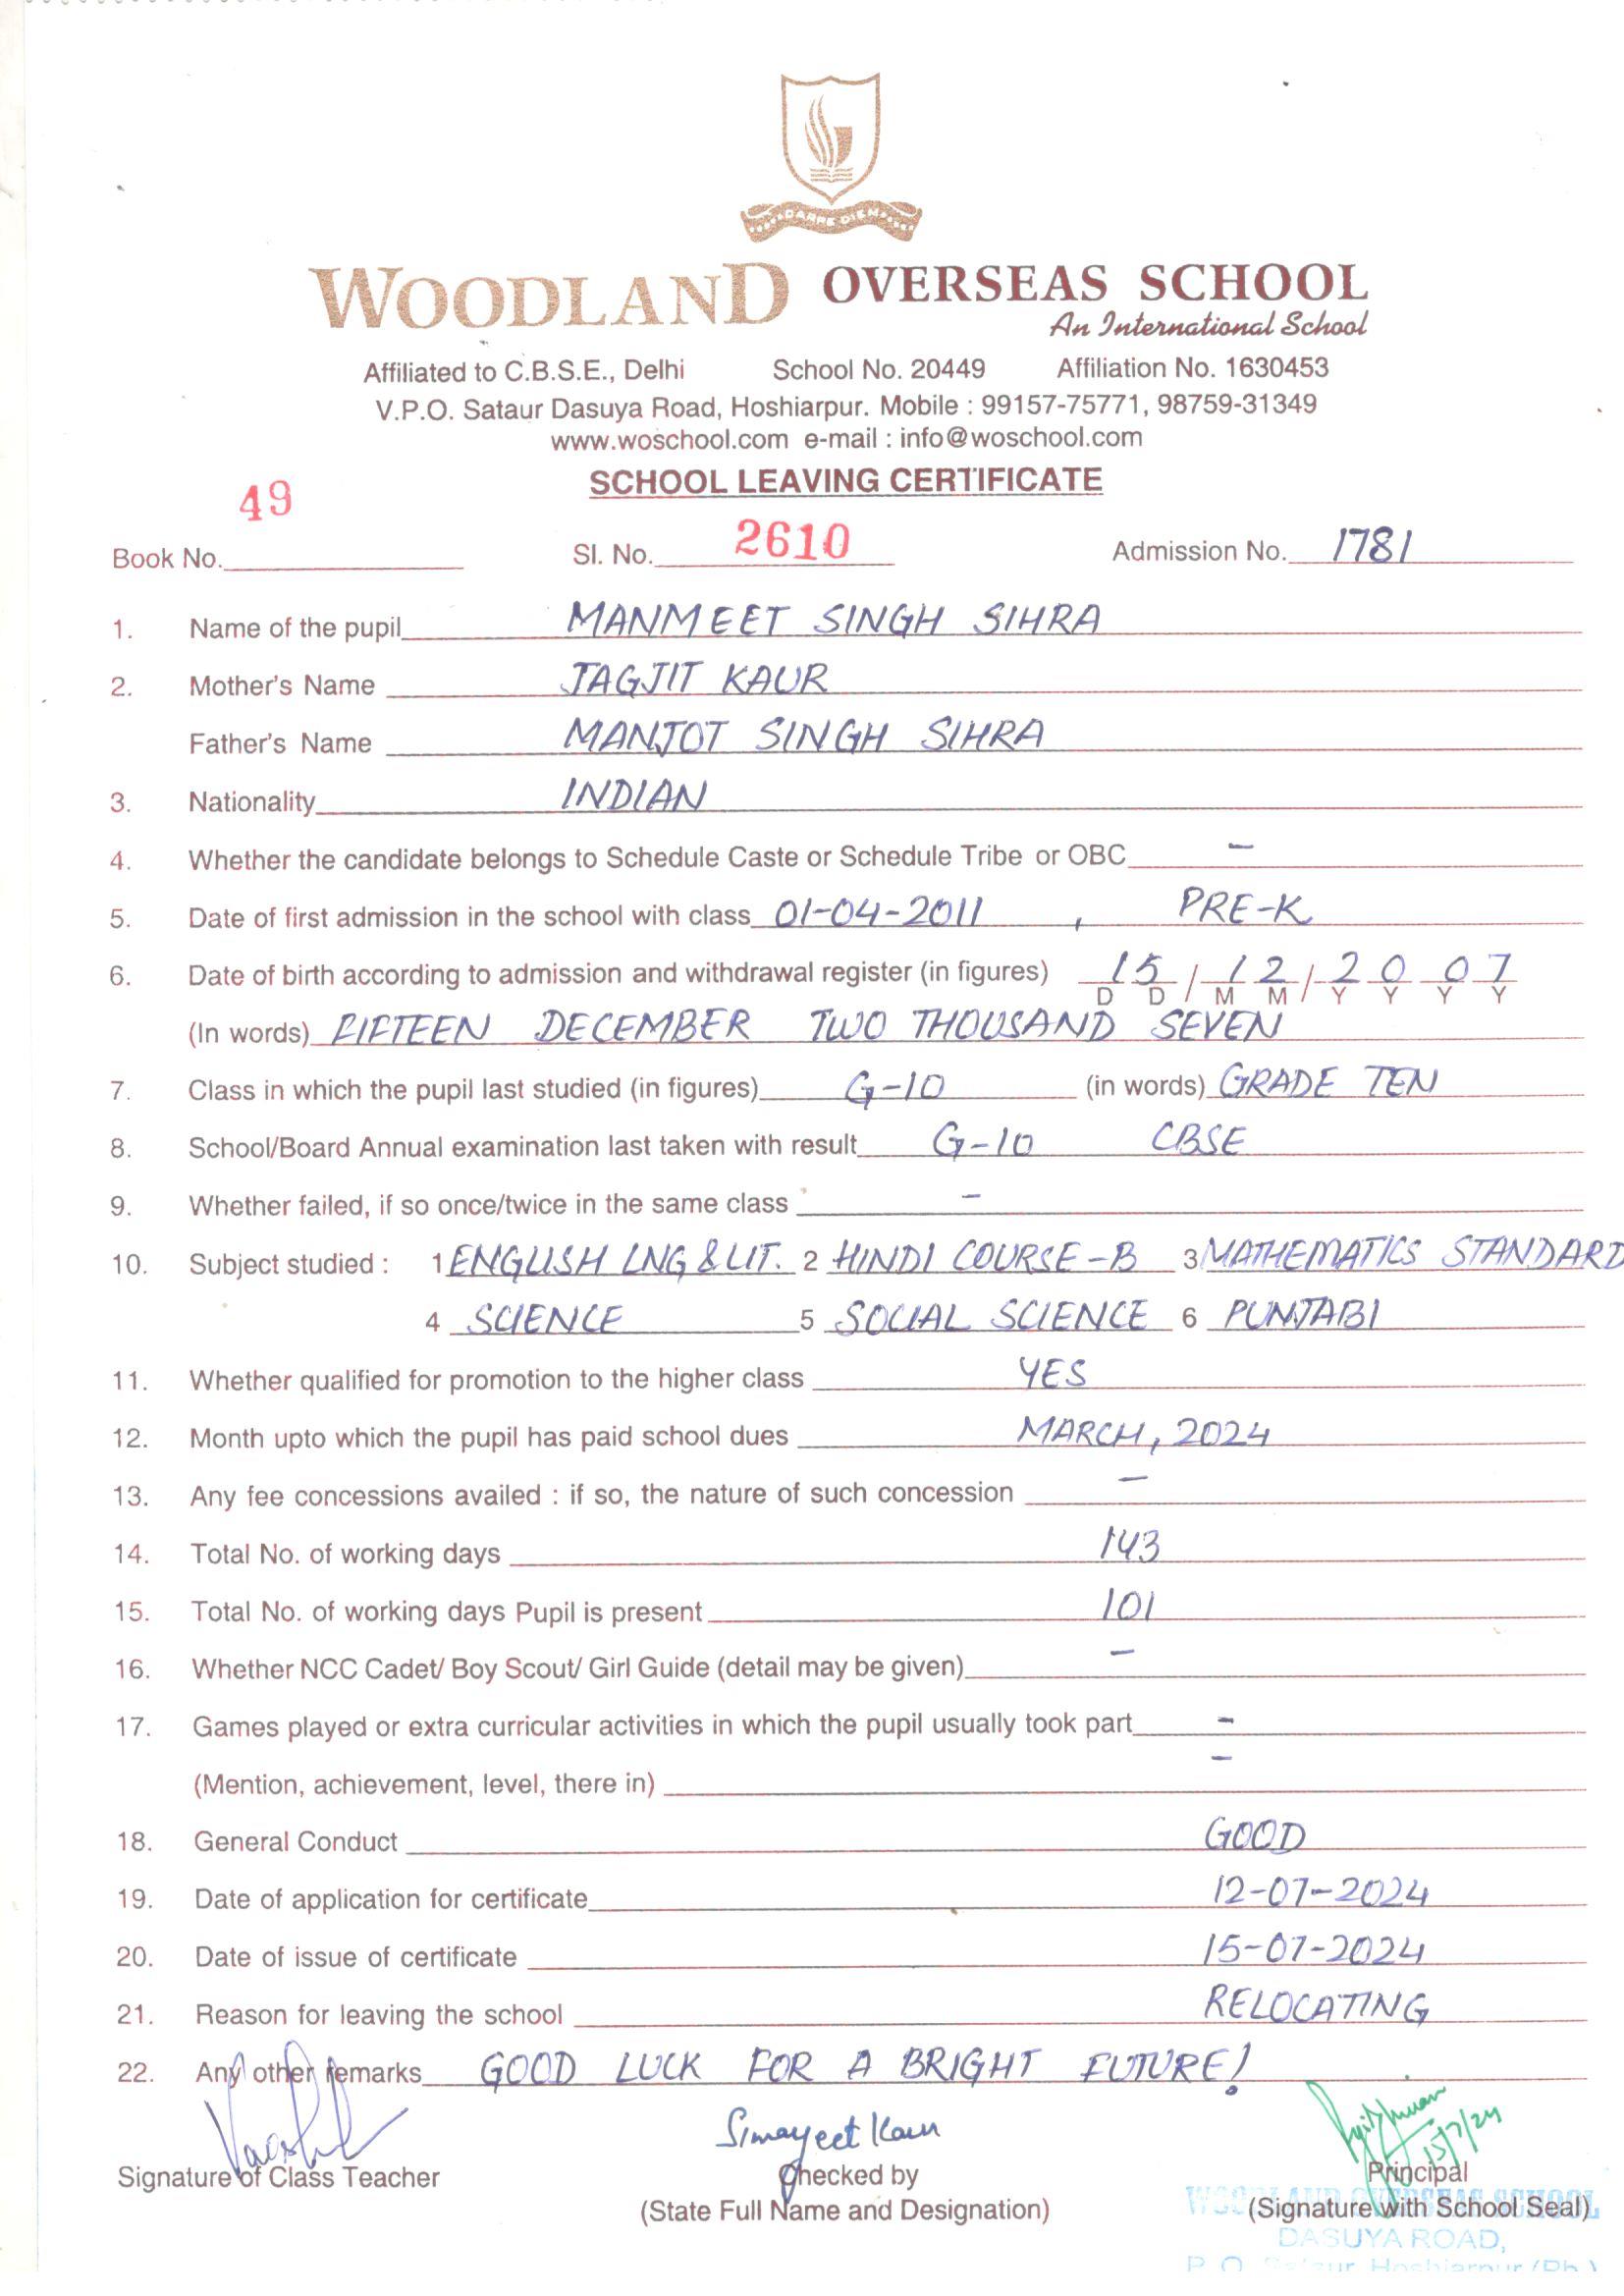 CARPE DIEM
WOODLAND OVERSEAS SCHOOL
An International School
Affiliated to C.B.S.E., Delhi School No. 20449 Affiliation No. 1630453
V.P.O. Sataur Dasuya Road, Hoshiarpur. Mobile : 99157-75771, 98759-31349
www.woschool.com e-mail : info@woschool.com
SCHOOL LEAVING CERTIFICATE
Book No. 49 Sl. No. 2610 Admission No. 1781
1. Name of the pupil MANMEET SINGH SIHRA
2. Mother's Name JAGJIT KAUR
Father's Name MANJOT SINGH SIHRA
3. Nationality INDIAN
4. Whether the candidate belongs to Schedule Caste or Schedule Tribe or OBC –
5. Date of first admission in the school with class 01-04-2011, PRE-K
6. Date of birth according to admission and withdrawal register (in figures) 15/12/2007
D D / M M / Y Y Y Y
(In words) FIFTEEN DECEMBER TWO THOUSAND SEVEN
7. Class in which the pupil last studied (in figures) G-10 (in words) GRADE TEN
8. School/Board Annual examination last taken with result G-10 CBSE
9. Whether failed, if so once/twice in the same class –
10. Subject studied : 1 ENGLISH LNG & LIT. 2 HINDI COURSE-B 3 MATHEMATICS STANDARD
4 SCIENCE 5 SOCIAL SCIENCE 6 PUNJABI
11. Whether qualified for promotion to the higher class YES
12. Month upto which the pupil has paid school dues MARCH, 2024
13. Any fee concessions availed : if so, the nature of such concession –
14. Total No. of working days 143
15. Total No. of working days Pupil is present 101
16. Whether NCC Cadet/ Boy Scout/ Girl Guide (detail may be given) –
17. Games played or extra curricular activities in which the pupil usually took part –
(Mention, achievement, level, there in) –
18. General Conduct GOOD
19. Date of application for certificate 12-07-2024
20. Date of issue of certificate 15-07-2024
21. Reason for leaving the school RELOCATING
22. Any other remarks GOOD LUCK FOR A BRIGHT FUTURE!
Kaur
15/7/24
Signature of Class Teacher Checked by Principal
(State Full Name and Designation) (Signature with School Seal)
WOODLAND OVERSEAS SCHOOL
DASUYA ROAD,
P.O. Sataur Hoshiarpur (Pb.)